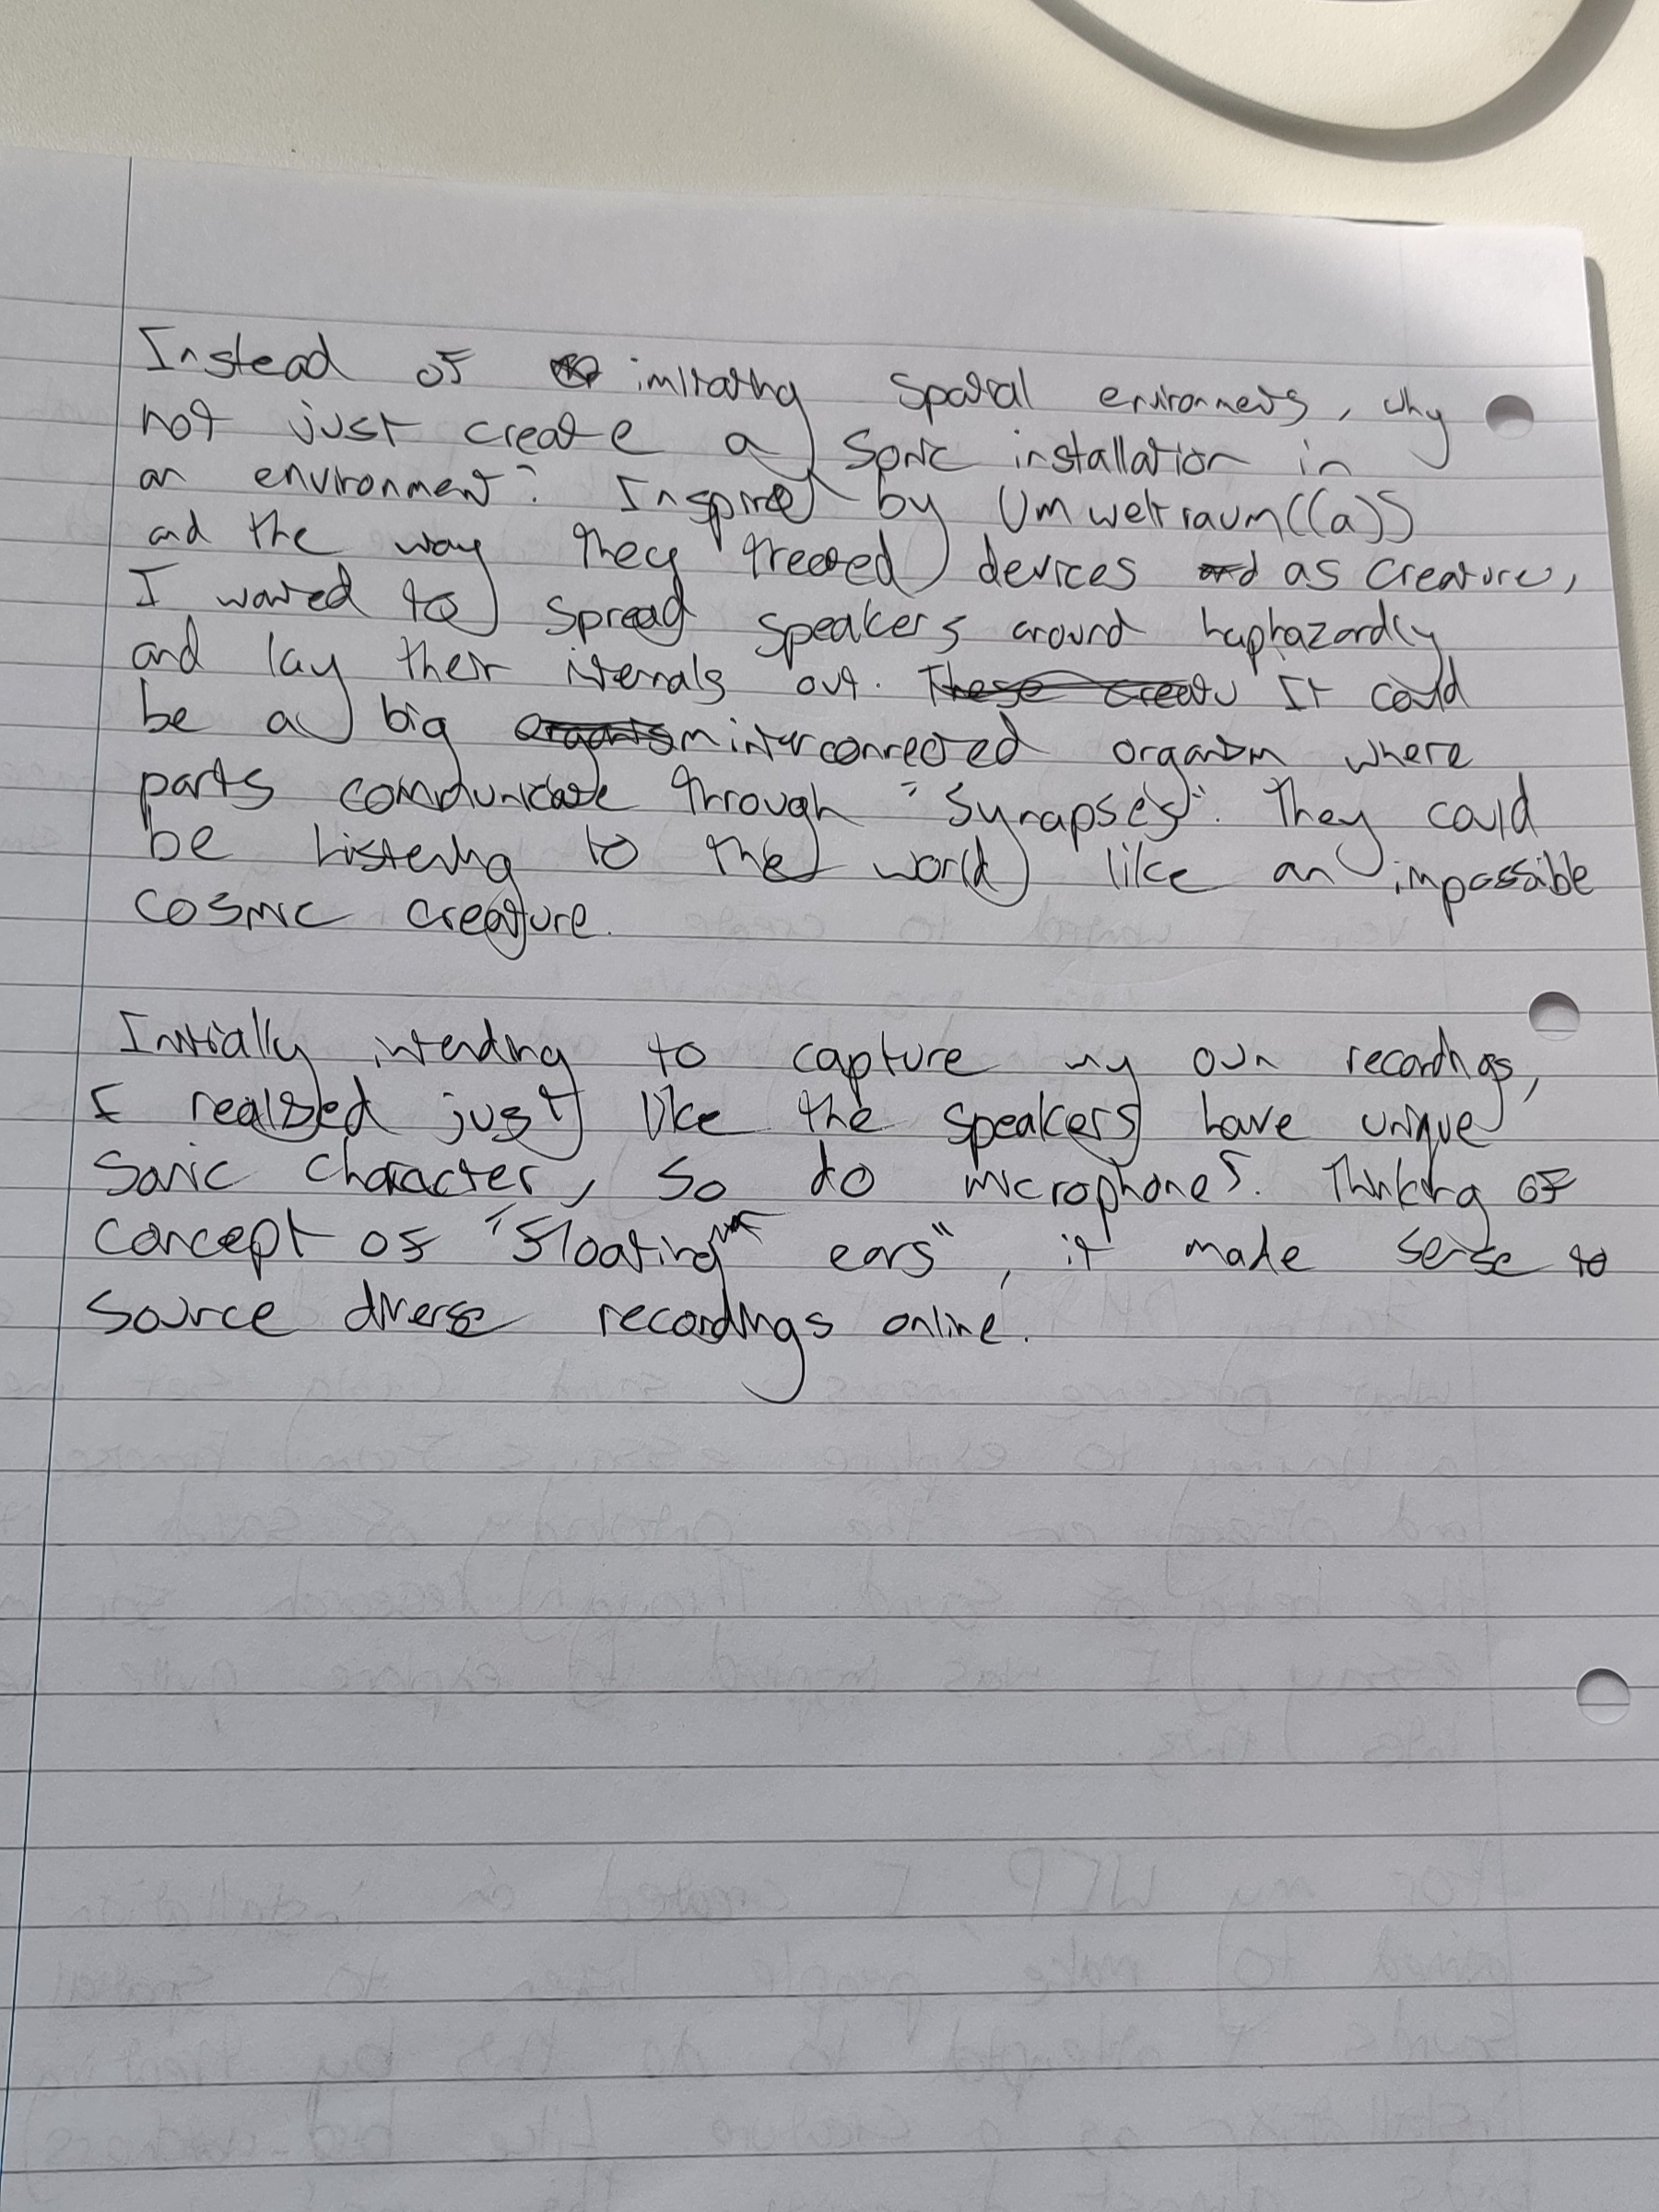 Instead of imitating spatial environments, why
not just create a sonic installation in
an environment? Inspired by Umweltraum((a))
and the way they treated devices as creature,
I wanted to spread speakers around haphazardly
and lay their internals out. These creatu It could
be a big organism interconnected organism where
parts communicate through "synapses". They could
be listening to the world like an impossible
cosmic creature.
Initially intending to capture my own recordings,
I realised just like the speakers have unique
sonic character, so do microphones. Thinking of
concept of "floating ears", it made sense to
source diverse recordings online.